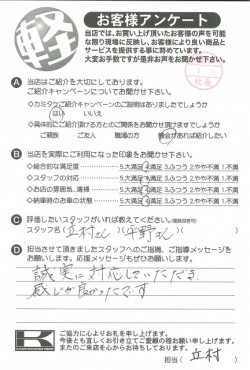 軽
お客様アンケート
当店では、お買い上げ頂いたお客様の声を可能
な限り現場に反映し、お客様により良い商品と
サービスを提供する事に努めています。
大変お手数ですが是非お声をお聞かせ下さい。
社長
A 当店はご紹介を大切にしております。
ご紹介キャンペーンについてお聞かせ下さい。
◇カミタケご紹介キャンペーンのご説明はありましたでしょうか
はい いいえ
◇具体的にご紹介頂ける方とのご関係をお聞かせ頂けますでしょうか
ご親族 ご友人 職場の方 機会があれば紹介したい
B 当店を実際にご利用になった印象をお聞かせ下さい。
◇総合的な満足度 5.大満足 4.満足 3.ふつう 2.やや不満 1.不満
◇スタッフの対応 5.大満足 4.満足 3.ふつう 2.やや不満 1.不満
◇お店の雰囲気、清掃 5.大満足 4.満足 3.ふつう 2.やや不満 1.不満
◇納車時のお車の状態 5.大満足 4.満足 3.ふつう 2.やや不満 1.不満
C 評価したいスタッフがいれば教えて下さい。(複数回答可)
スタッフ名(立村さん)(平野さん)
D 担当させて頂きましたスタッフへのご指摘、ご指導メッセージを
お願いします。応援メッセージもぜひお願いします。
誠実に対応していただき、
感じが良かったです
K
ご協力に心よりお礼を申し上げます。
今後とも宜しくお引き立てご愛顧の程お願い申し上げます。
またのご来店を心からお待ちしております。
担当(立村)